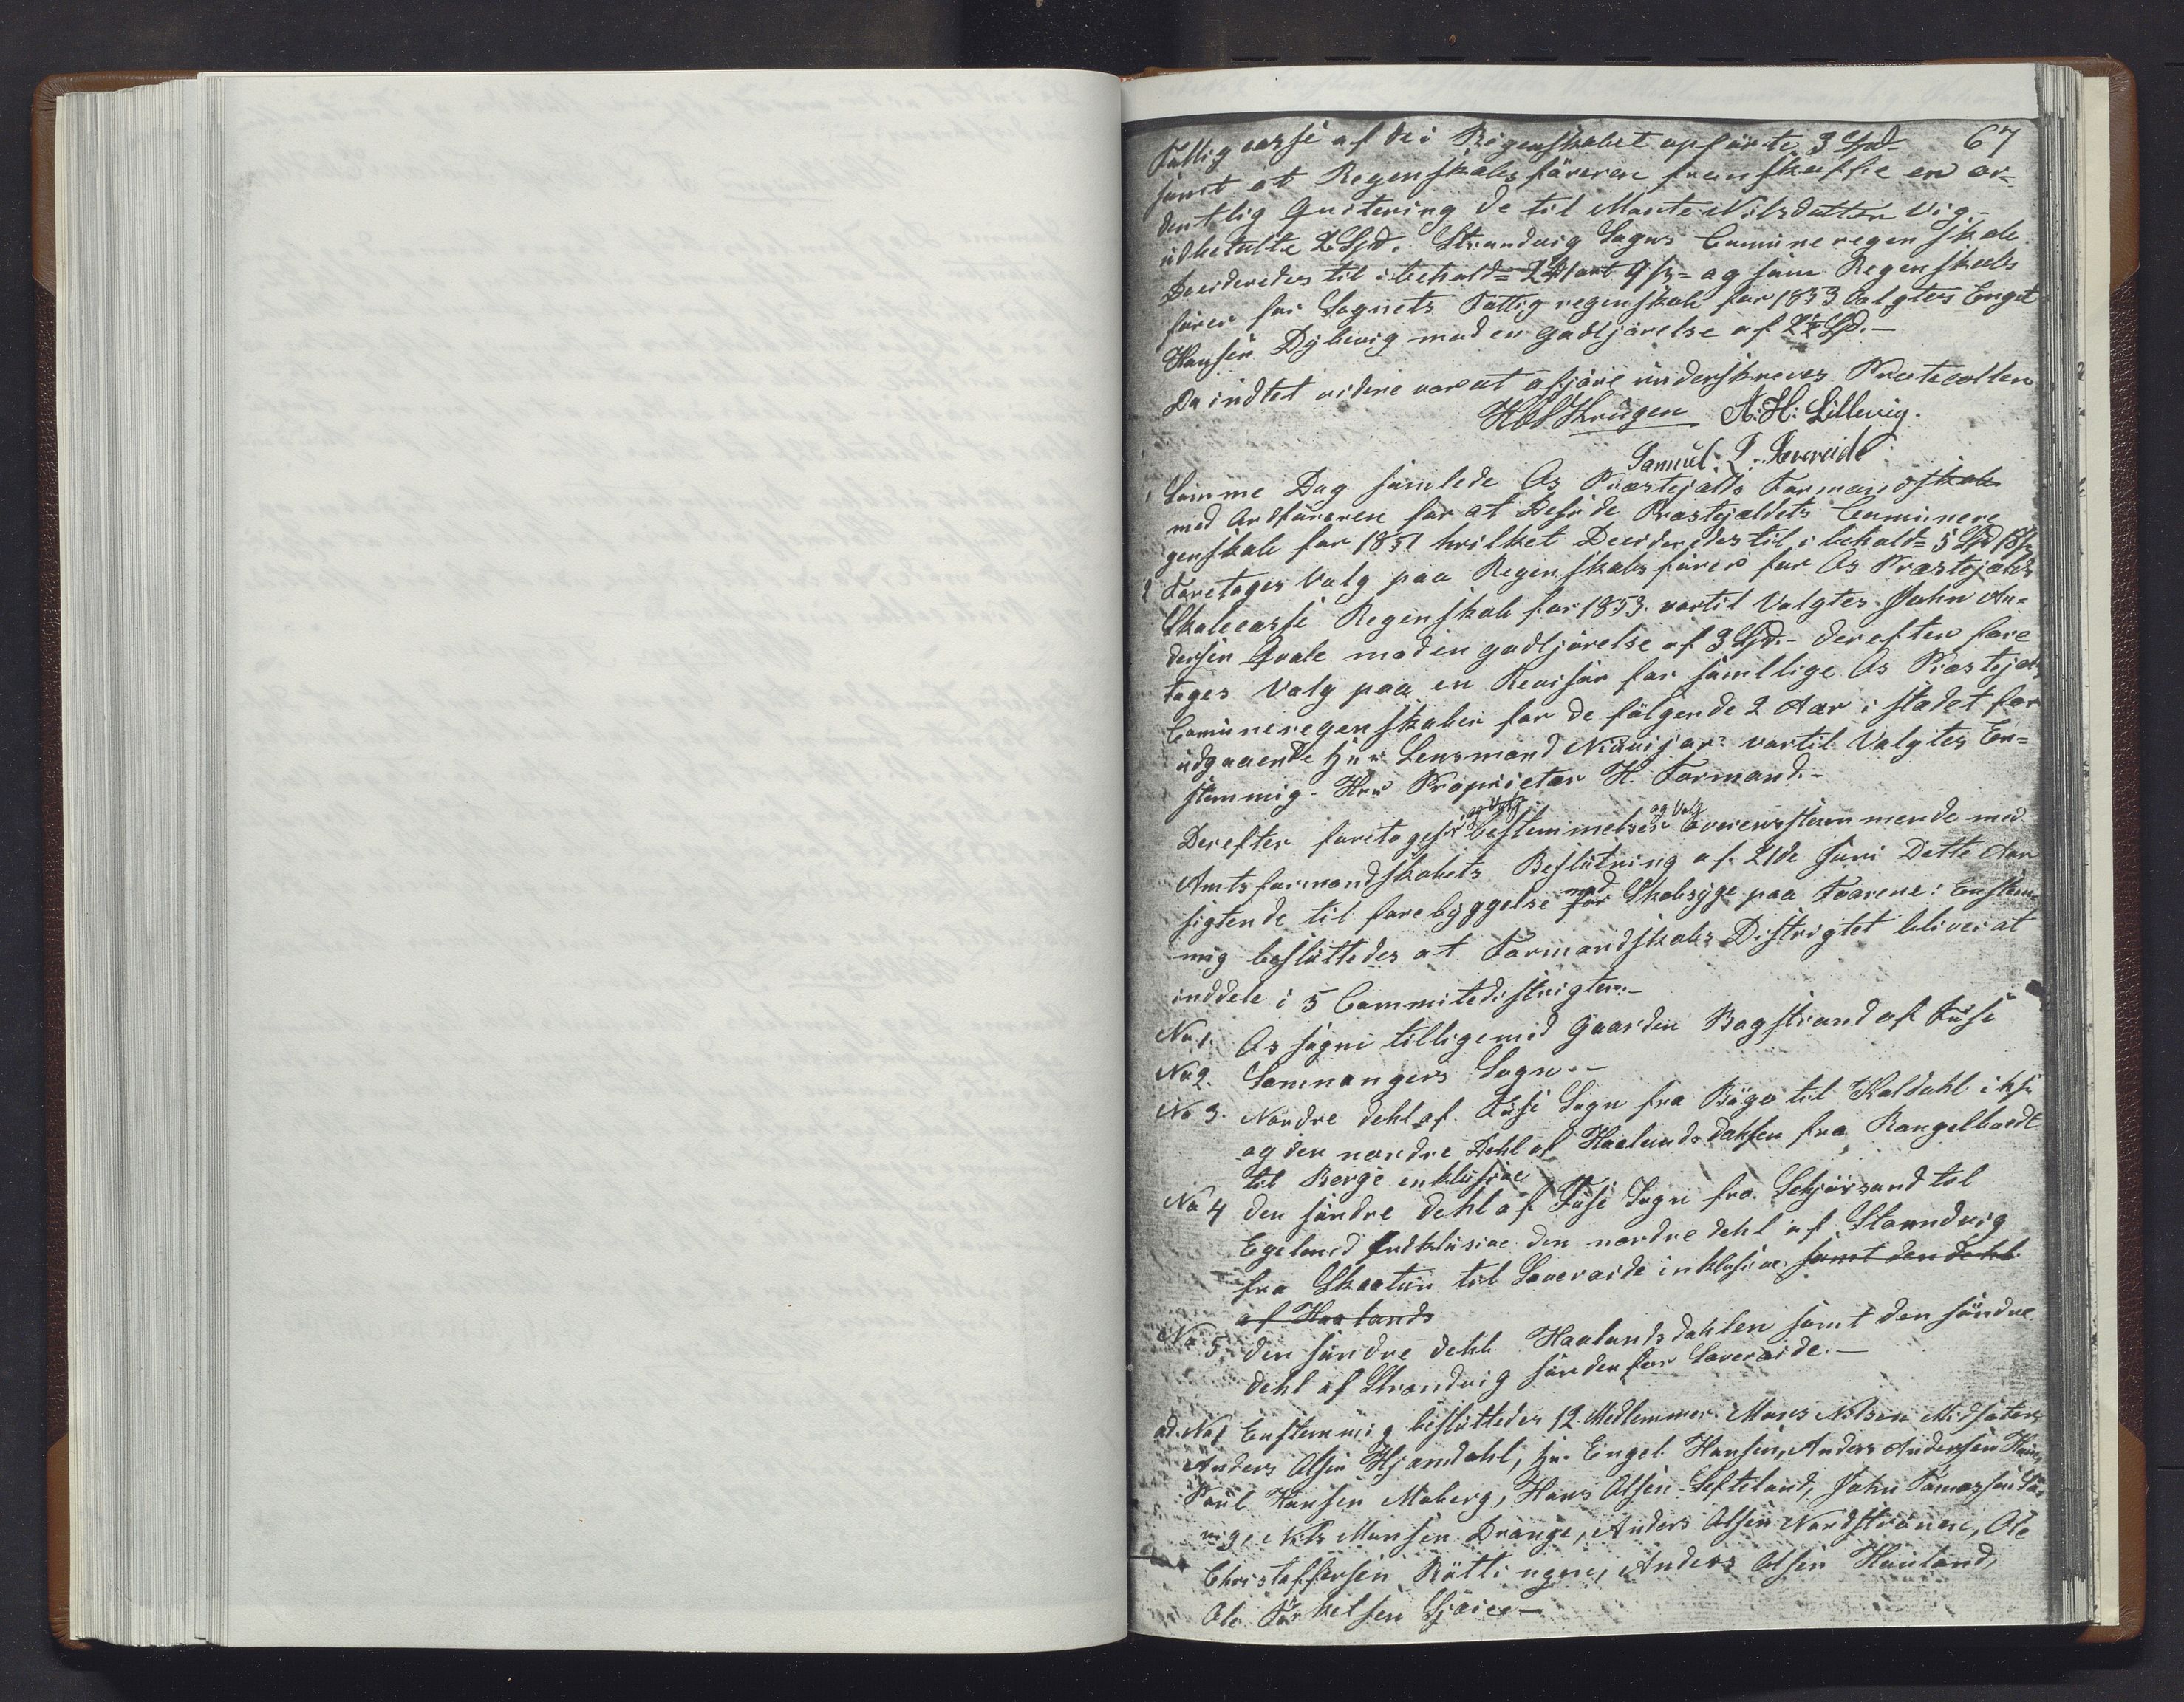 67
Fattigcasse af de i Regenskabet opførte 3 Spd.
samt at Regenskabsføreren fremskaffe en or-
dentlig Quitering de til Marite Nilsdatter Vig
udbetalte 2 Spd. Strandvig Sogns Comuneregenskab
Desideredes til i behold= 2 Ort 9 ß= og som Regenskabs
fører for Sognets Fattigregenskab for 1853 Valgtes Engel
Hansen Dybevig mod en godtjørelse af 2½ Spd.-
Da indtet videre var at afjøre underskreves Protocollen
Krügen A: H: Lillevig.
Samuel
1 Samme Dag samlede Os Præstejælds Formandskab
med Ordføreren for at Deside Præstejældets Comunere
genskab for 1851 hvilket Desideredes til i behold= 5 Spd
2 Foretages Valg paa Regenskabsfører for Os Præstejælds
Skolecasse Regenskab for 1853. vortil Valgtes John An=
dersen Qvale mod en godtjørelse af 3 Spd.- derefter fore
tages Valg paa en Revisor for samtlige Os Præstejæl
Comuneregenskaber for de følgende 2 Aar i stedet for
udgaaende Hr. Lensmand vortil Valgtes En=
stemmig- Herr Proprietær H. Formand.-
Derefter foretoges og Valg bestemmelser og Valg overensstemmende med
Amtsformandskabets Beslutning af 21de Juni Dette Aar
sigtende til forebyggelse for mod Skabsyge paa Faarene: Enstem
mig besluttedes at Formandskabs Distrigtet bliver at
inddele i 5 Commitedistrigter.-
No 1. Os sogn tilligemed Gaarden Bogstrand af Fuse
No 2. Samnangers Sogn.-
No 3. Nordre dehl af Fuse Sogn fra Bøgo til Koldahl
og den nordre Dehl af Haalandsdahlen fra Rangelboedt
til Berge enklusive
No 4 den søndre dehl af Fuse Sogn fra Schjørsand til
Egeland Indklusive den nordre dehl af Stanndvig
fra Skaatun til Saveraide inklusive, samt den dehl
af Haalands
No 5. den søndre dehl Haalandsdahlen samt den søndre
dehl af Strandvig sønden for Saveraide.-
ad. No 1 Enstemmig besluttedes 12 Medlemmer Mons Nilsen Midsæter
Anders Olsen Hjandahl, Hr. Engel Hansen, Anders Andersen
Poul Hansen Moberg, Hans Olsen Lefteland, John Tomassen
vig, Nils Monsen Drange, Anders Olsen Nordstrønen, Ole
Christoffersen Røttingen, Anders Olsen Hauland,
Ole Torkelsen